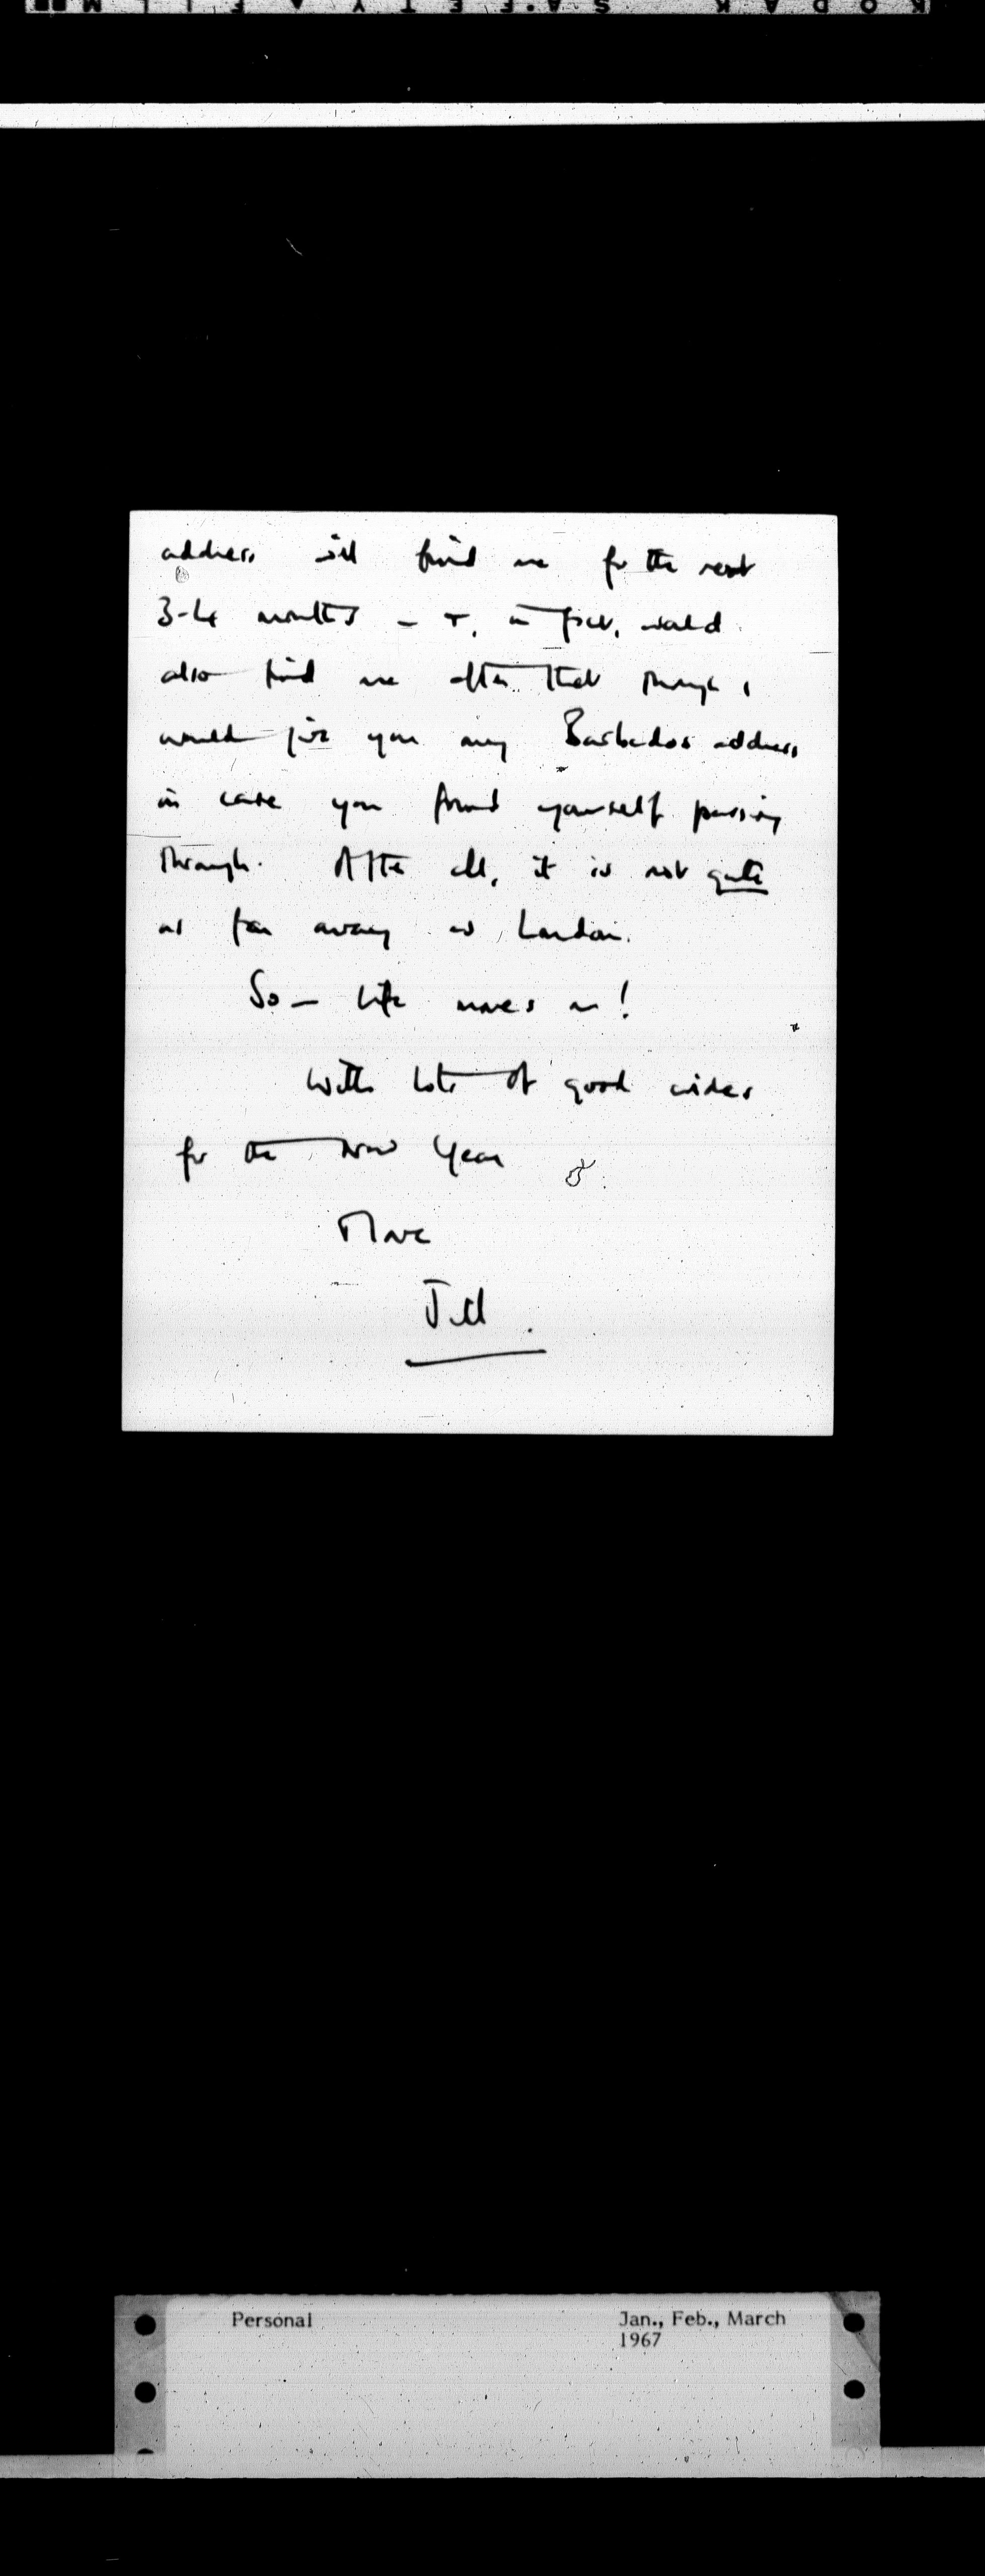 KODAK SAFETY FILM
address will find me for the next
3-4 months – +, in fact, would
also find me after that though I
would give you my Barbados address
in case you found yourself passing
through. After all, it is not quite
as far away as London.
So – life moves on!
With lots of good wishes
for the New Year
Jill.
Personal
Jan., Feb., March
1967